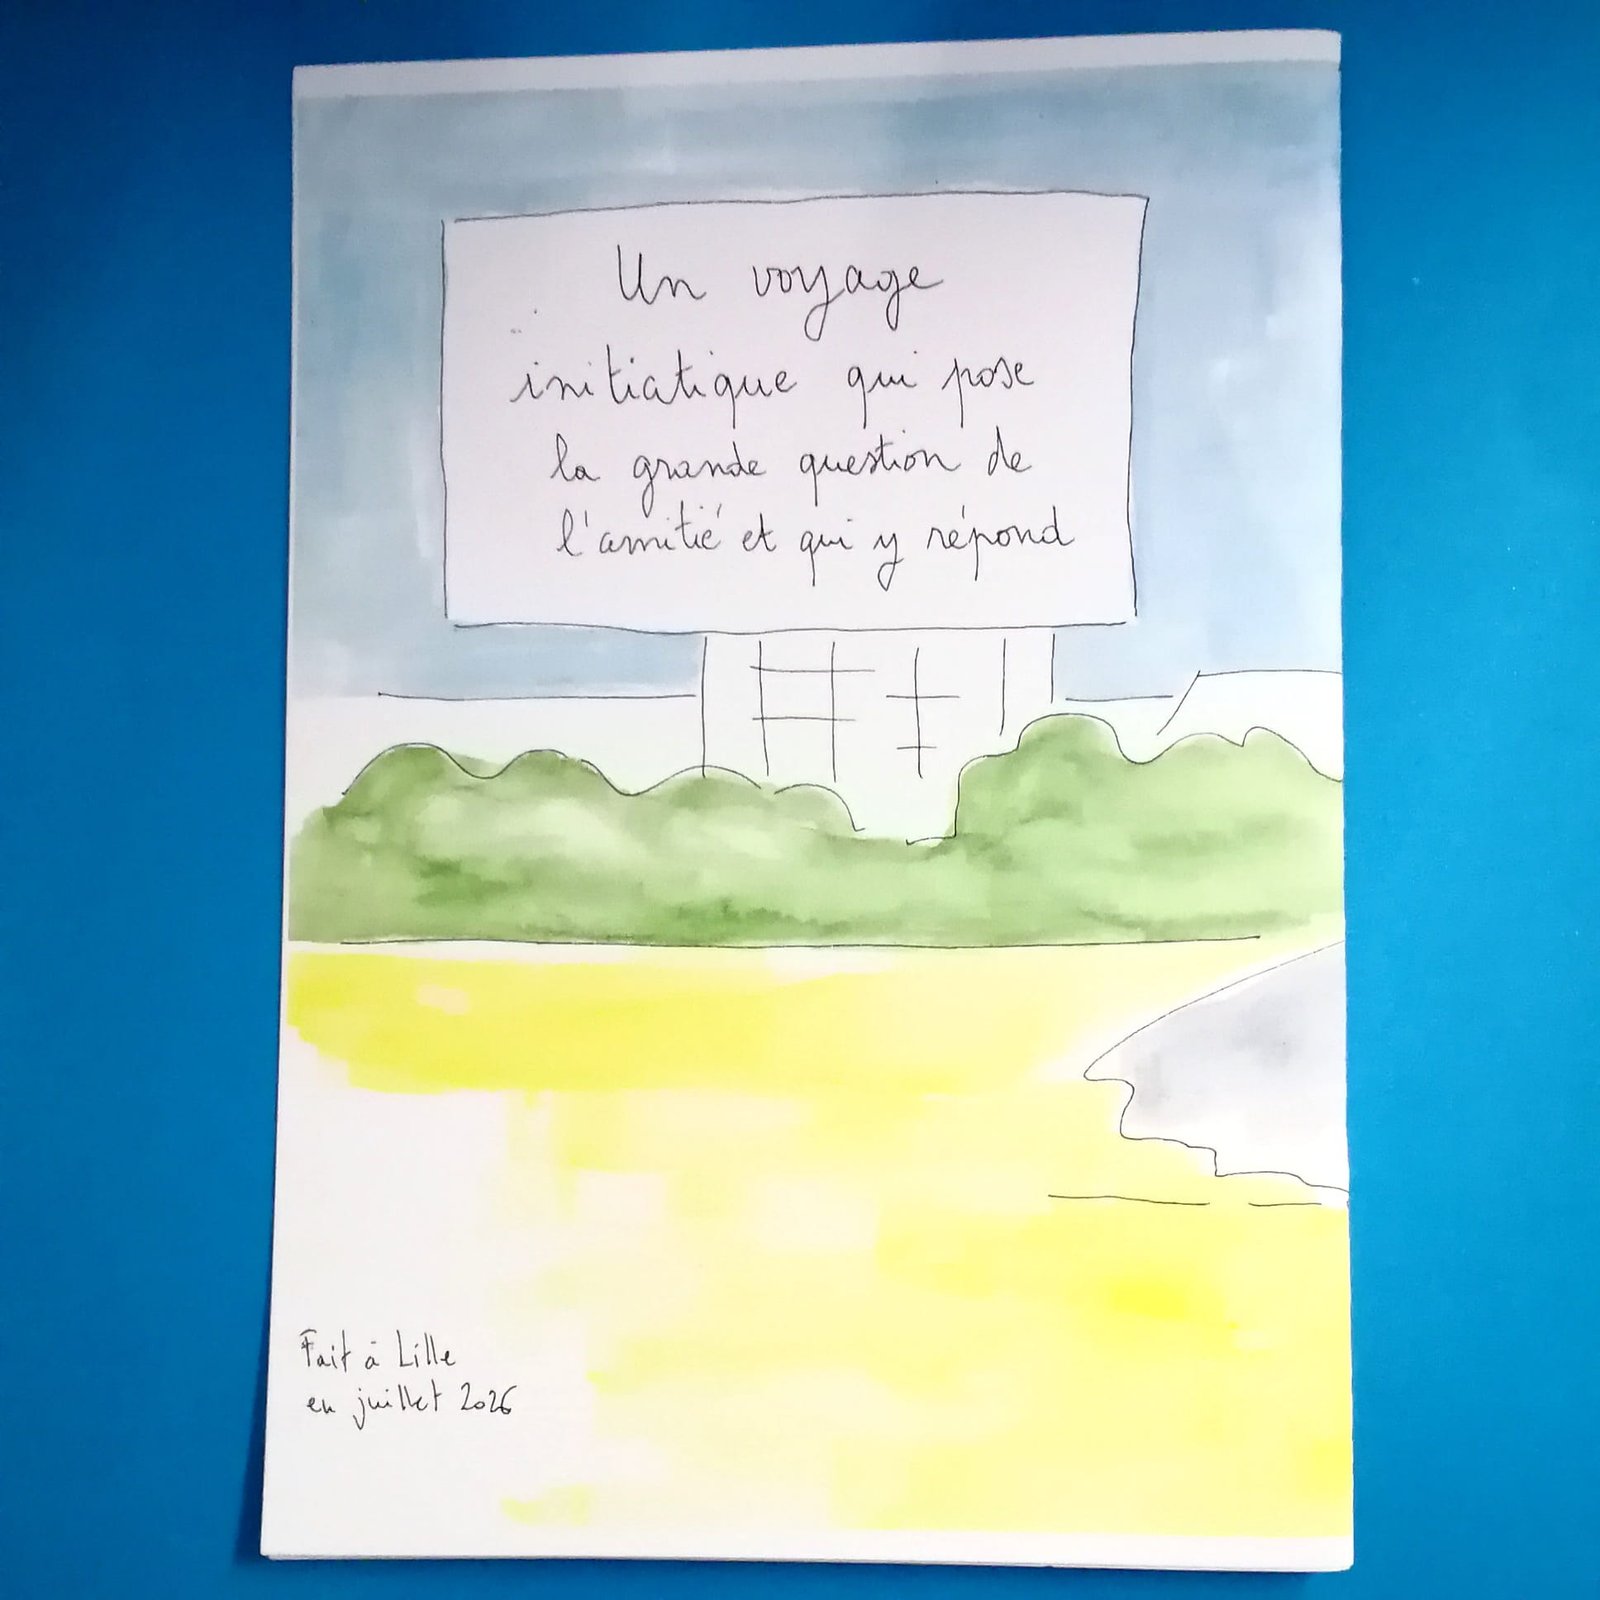 Un voyage
initiatique qui pose
la grande question de
l'amitié et qui y répond
Fait à Lille
en juillet 2026